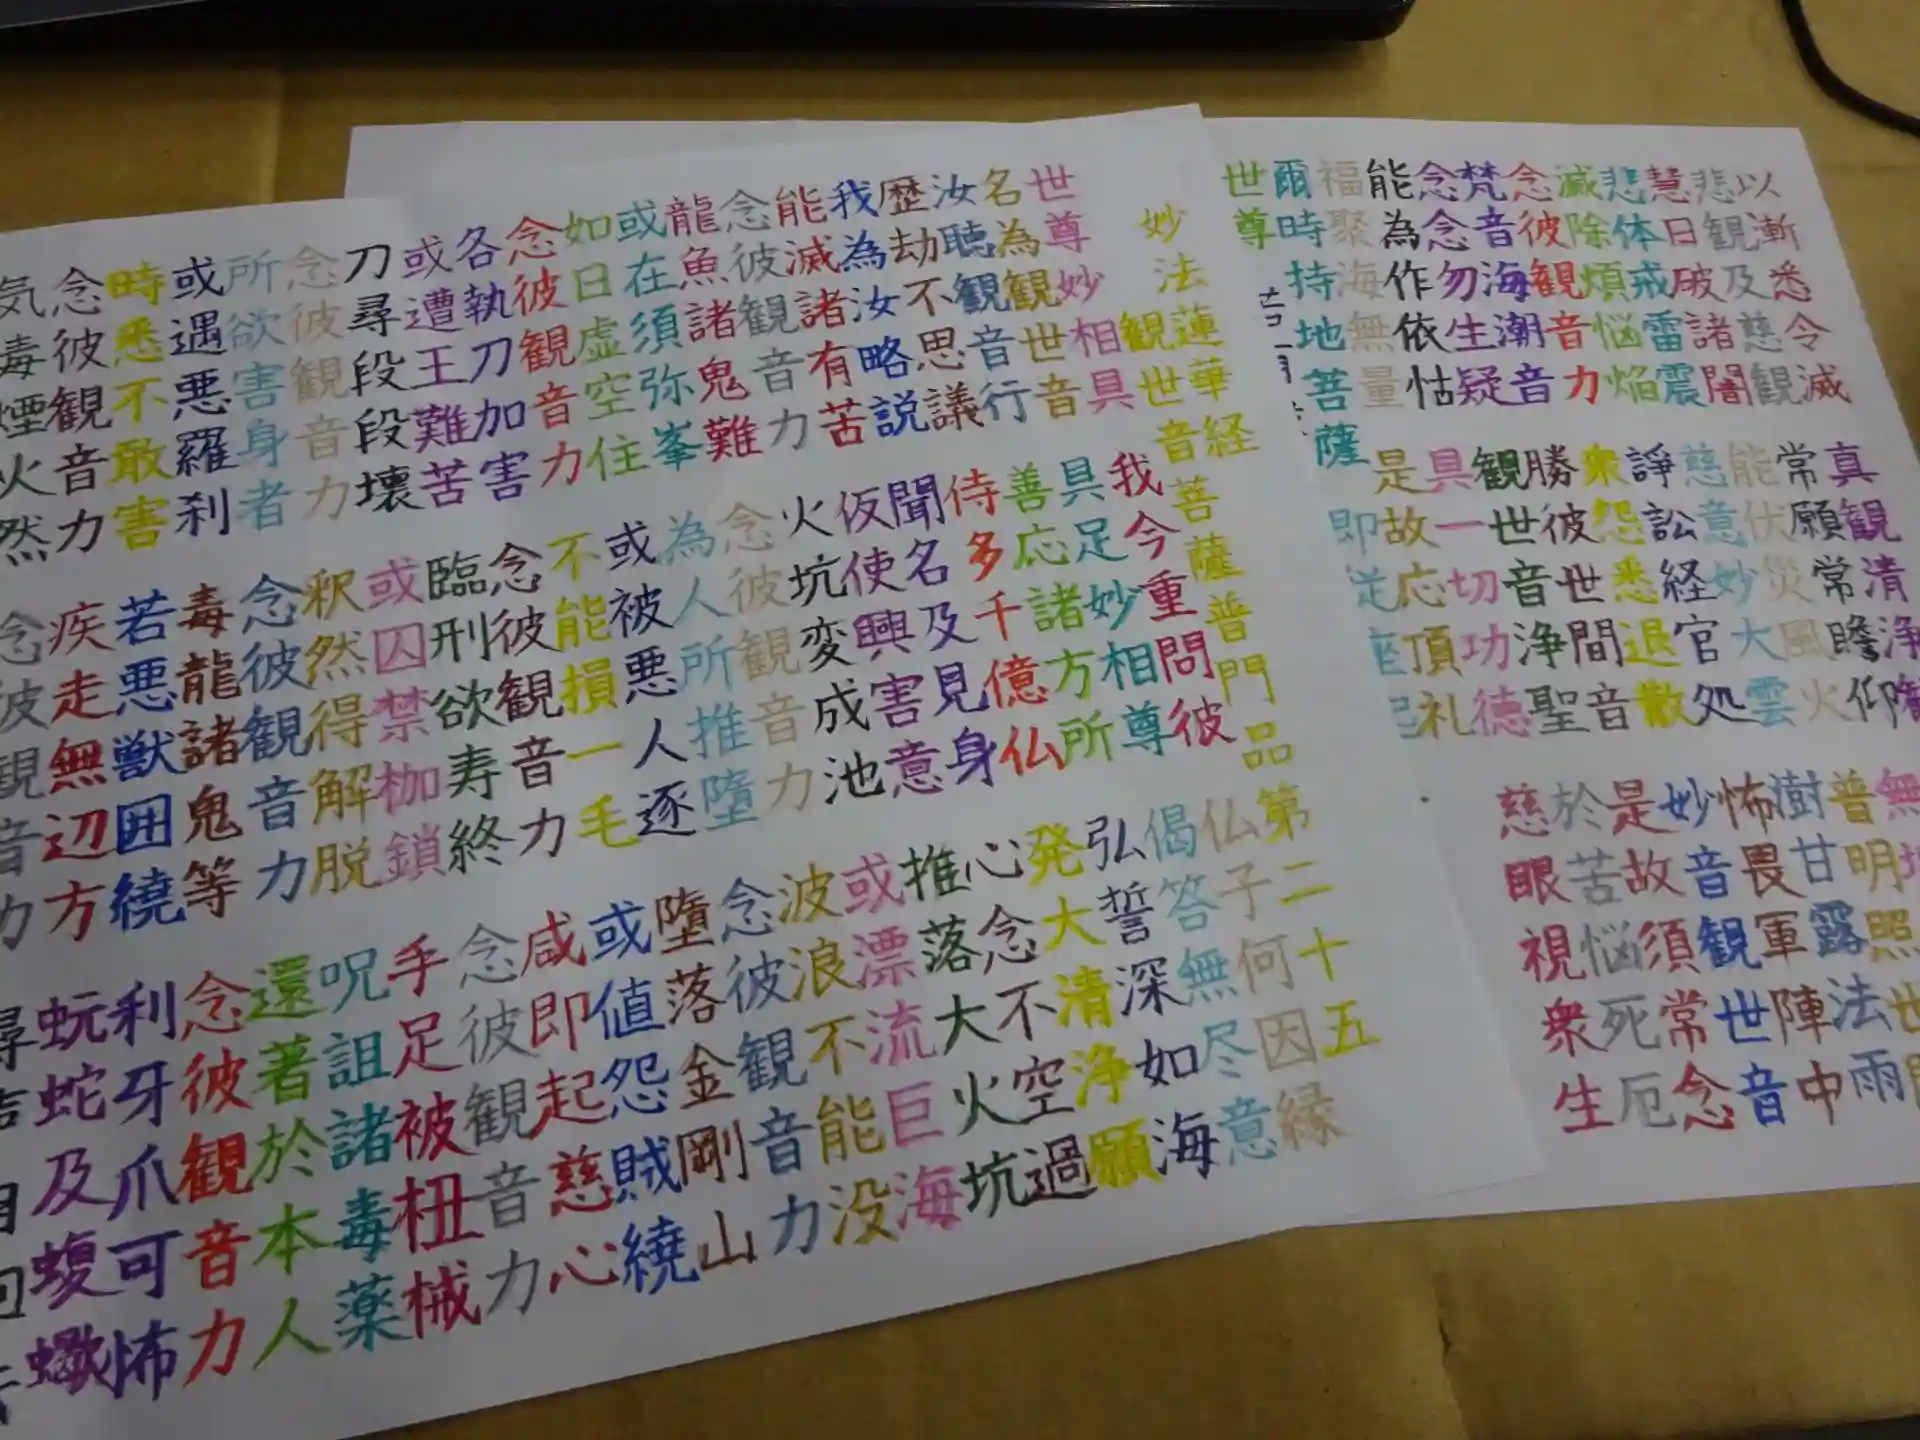 妙法蓮華経
観世音菩薩普門品第二十五
世尊妙相具 我今重問彼 仏子何因縁
名為観世音 具足妙相尊 偈答無尽意
汝聴観音行 善応諸方所 弘誓深如海
歴劫不思議 侍多千億仏 発大清浄願
我為汝略説 聞名及見身 心念不空過
能滅諸有苦 仮使興害意 推落大火坑
念彼観音力 火坑変成池 或漂流巨海
龍魚諸鬼難 念彼観音力 波浪不能没
或在須弥峯 為人所推墮 念彼観音力
如日虚空住 或被悪人逐 墮落金剛山
念彼観音力 不能損一毛 或値怨賊繞
各執刀加害 念彼観音力 咸即起慈心
或遭王難苦 臨刑欲寿終 念彼観音力
刀尋段段壊 或囚禁枷鎖 手足被杻械
念彼観音力 釈然得解脱 呪詛諸毒薬
所欲害身者 念彼観音力 還著於本人
或遇悪羅刹 毒龍諸鬼等 念彼観音力
時悉不敢害 若悪獣囲繞 利牙爪可怖
念彼観音力 疾走無辺方 蚖蛇及蝮蠍
気毒煙火然 念彼観音力 尋
以漸悉令滅 真観清浄観
悲観及慈観 常願常瞻仰 無
慧日破諸闇 能伏災風火 普明照世
悲体戒雷震 慈意妙大雲 澍甘露法雨
滅除煩悩焔 諍訟経官処 怖畏軍陣中
念彼観音力 衆怨悉退散 妙音観世音
梵音海潮音 勝彼世間音 是故須常念
念念勿生疑 観世音浄聖 於苦悩死厄
能為作依怙 具一切功徳 慈眼視衆生
福聚海無量 是故応頂礼
爾時持地菩薩 即従座起
世尊